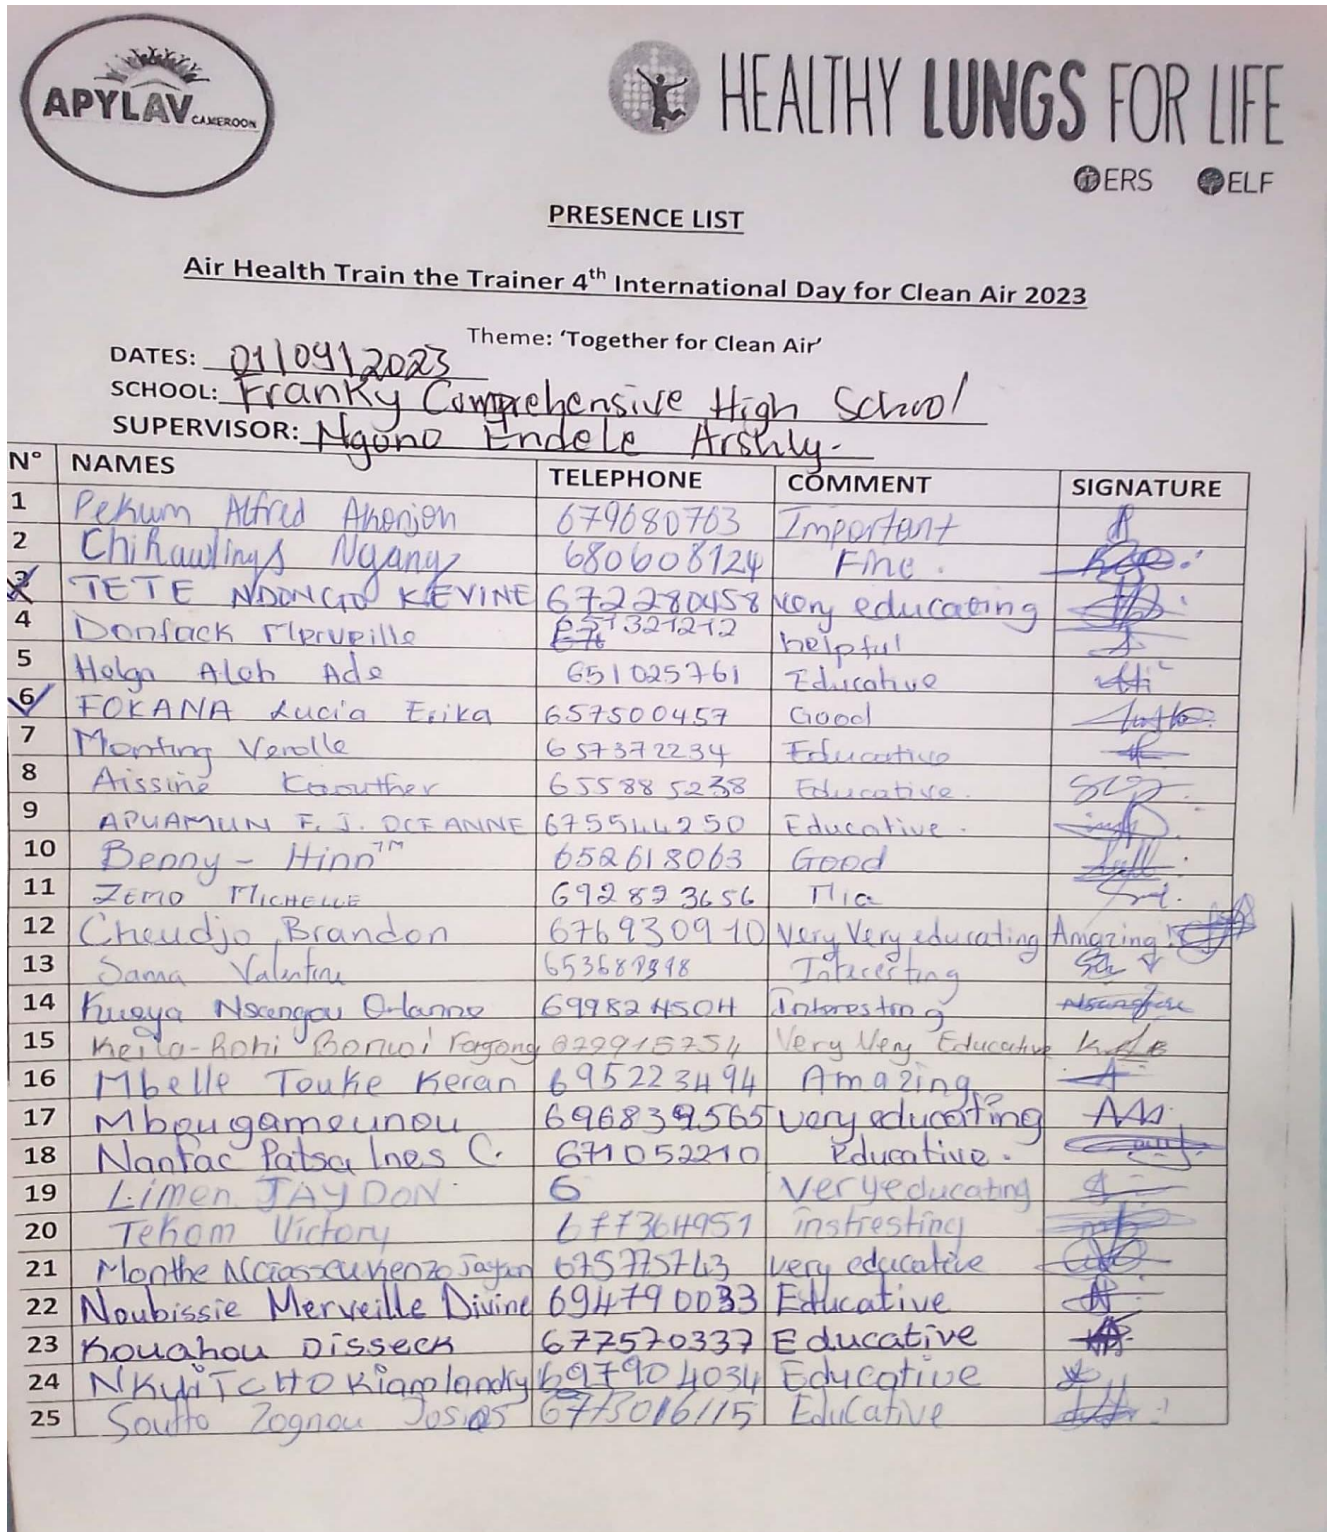 APYLAV CAMEROON
HEALTHY LUNGS FOR LIFE
ERS ELF
PRESENCE LIST
Air Health Train the Trainer 4th International Day for Clean Air 2023
Theme: ‘Together for Clean Air’
DATES: 01/09/2023
SCHOOL: Franky Comprehensive High School
SUPERVISOR: Ngono Endele Arshly-
N° NAMES TELEPHONE COMMENT SIGNATURE
1 Pekum Alfred 679680763 Important
2 Chirawlings Ngang 680608124 Fine.
3 TETE NDONGO KEVINE 672280458 very educating
4 Donfack Merveille 651321212 helpful
5 Helga Aleh Ade 651025761 Educative
6 FOKANA Lucia Erika 657500457 Good
7 Monting Verolle 657372234 Educative
8 Aissine Kaouther 655885238 Educative.
9 APUAMUN F. J. OCEANNE 675544250 Educative.
10 Benny - Hinn TM 652618063 Good
11 ZEMO MICHELLE 692823656
12 Cheudjo Brandon 676930910 Very Very educating Amazing!
13 Sama Valentine Interesting
14 Kueya Nsangou Orlanne 699824504 Interesting
15 Keila-Rohi Very Very Educative K.R.B
16 Mbelle Touke Keran 695223494 Amazing
17 Mbougameunou 696839565 very educating
18 Nanfac Patsa Ines C. 671052210 Educative.
19 Limen JAYDON 6 Very educating
20 Tekam Victory 677364951 instresting
21 Monthe Kenzo 675775743 very educative
22 Noubissie Merveille Divine 694790033 Educative
23 Kouahou Disseck 677570337 Educative
24 697904034 Educative
25 Soutto Zognou Josias 6773016115 Educative